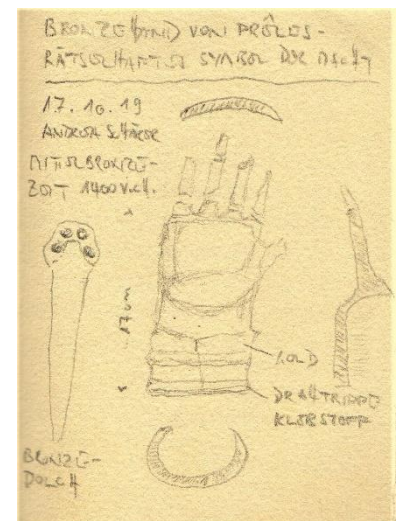 BRONZEHAND VON PRÊLES -
RÄTSELHAFTES SYMBOL DER MACHT
17.10.19
ANDREA SCHÄRER
MITTELBRONZE-
ZEIT 1400 V.CH.
17cm
GOLD
KLEBSTOFF
BRONZE-
DOLCH